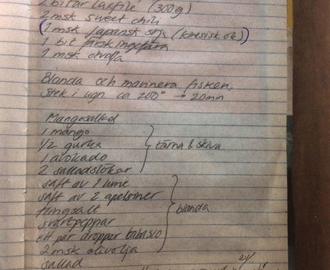 2 bitar laxfilé (300g)
2 msk sweet chili
(1 msk japansk soja (kinesisk ok)
1 bit färsk ingefära
1 msk olivolja
Blanda och marinera fisken.
Stek i ugn ca 200° → 20min
Mangosallad
1 mango
1/2 gurka
1 avokado
2 salladslökar
tärna & skiva
saft av 1 lime
saft av 2 apelsiner
flingsalt
svartpeppar
ett par droppar tabasco
2 msk olivolja
blanda
sallad